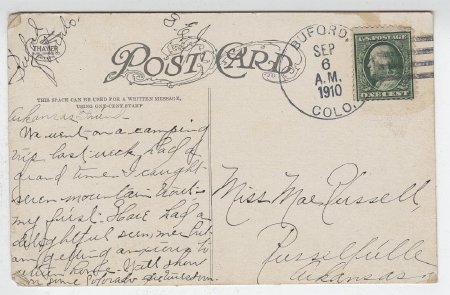 THAYER
POST CARD
THIS SPACE CAN BE USED FOR A WRITTEN MESSAGE,
USING ONE-CENT STAMP
BUFORD,
SEP
6
A.M.
1910
COLO.
U.S. POSTAGE
ONE CENT
Arkansas Friend
We went on a camping
trip last week, had a
grand time. I caught
seven mountain trout
my first. Have had a
delightful summer but
am getting anxious to
home. Will show
some Colorado pictures
Miss Mae Russell,
Russellville
Arkansas